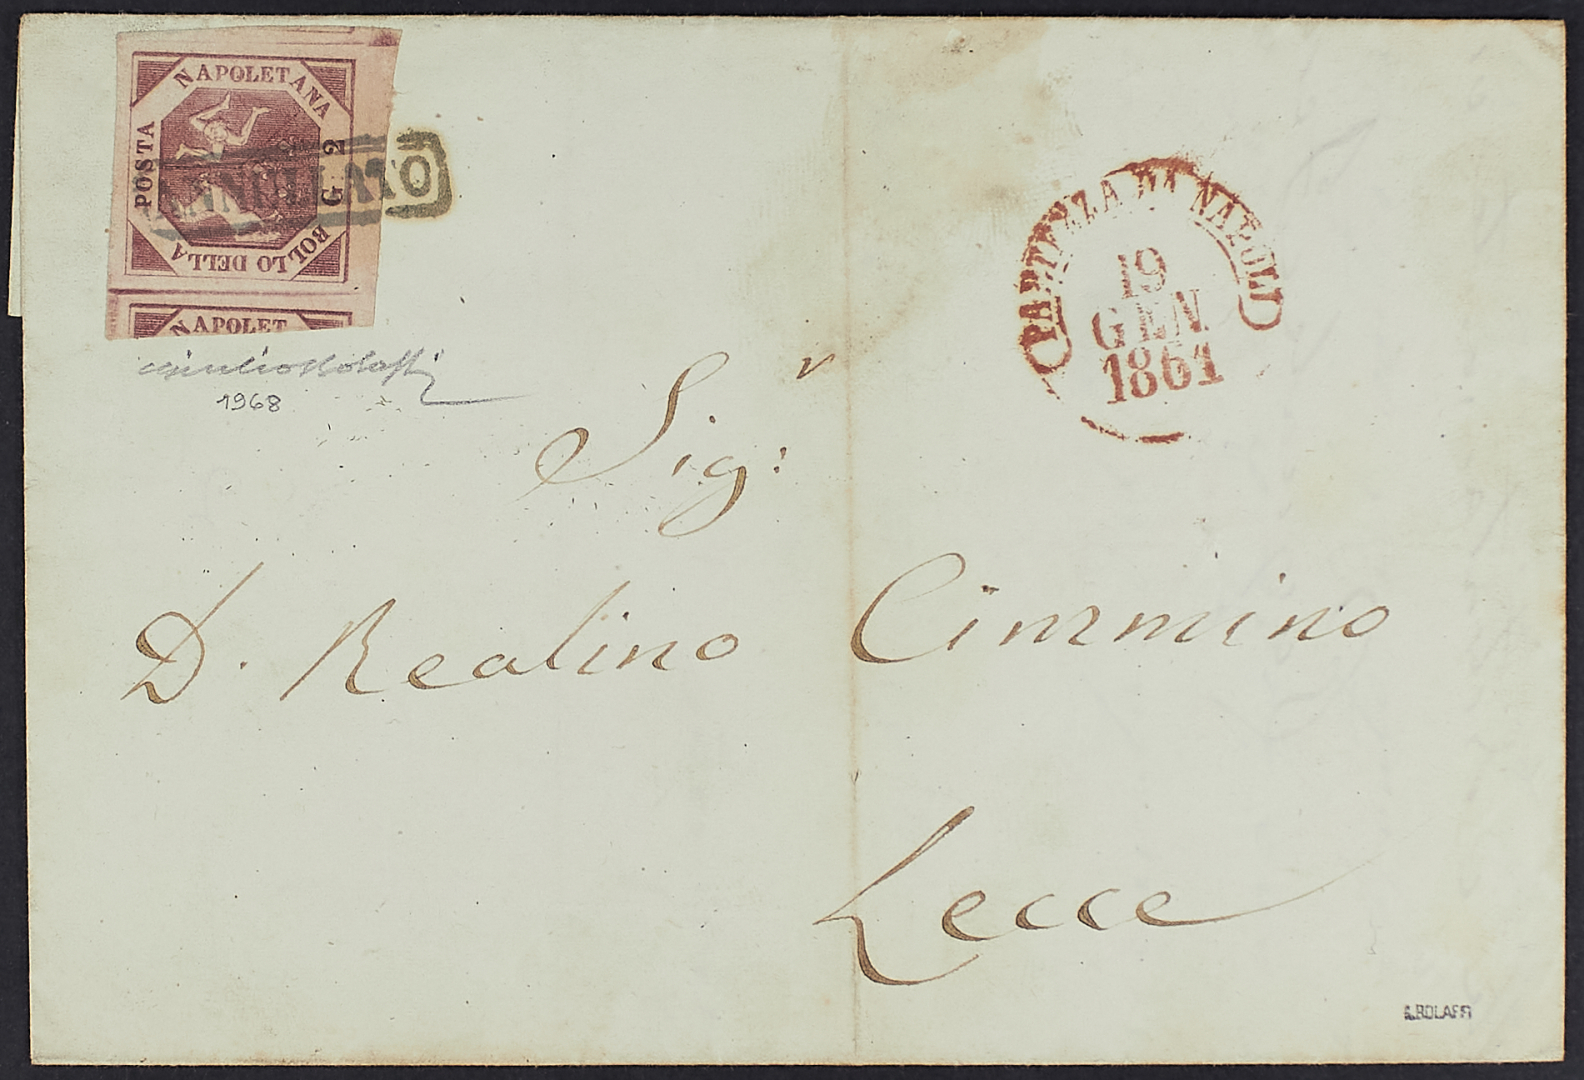 BOLLO DELLA POSTA NAPOLETANA G 2
ANNULLATO
NAPOLET
Giulio Bolaffi
1968
PARTENZA DA NAPOLI
19
GEN
1861
Sig:r
D. Realino Cimmino
Lecce
G. BOLAFFI